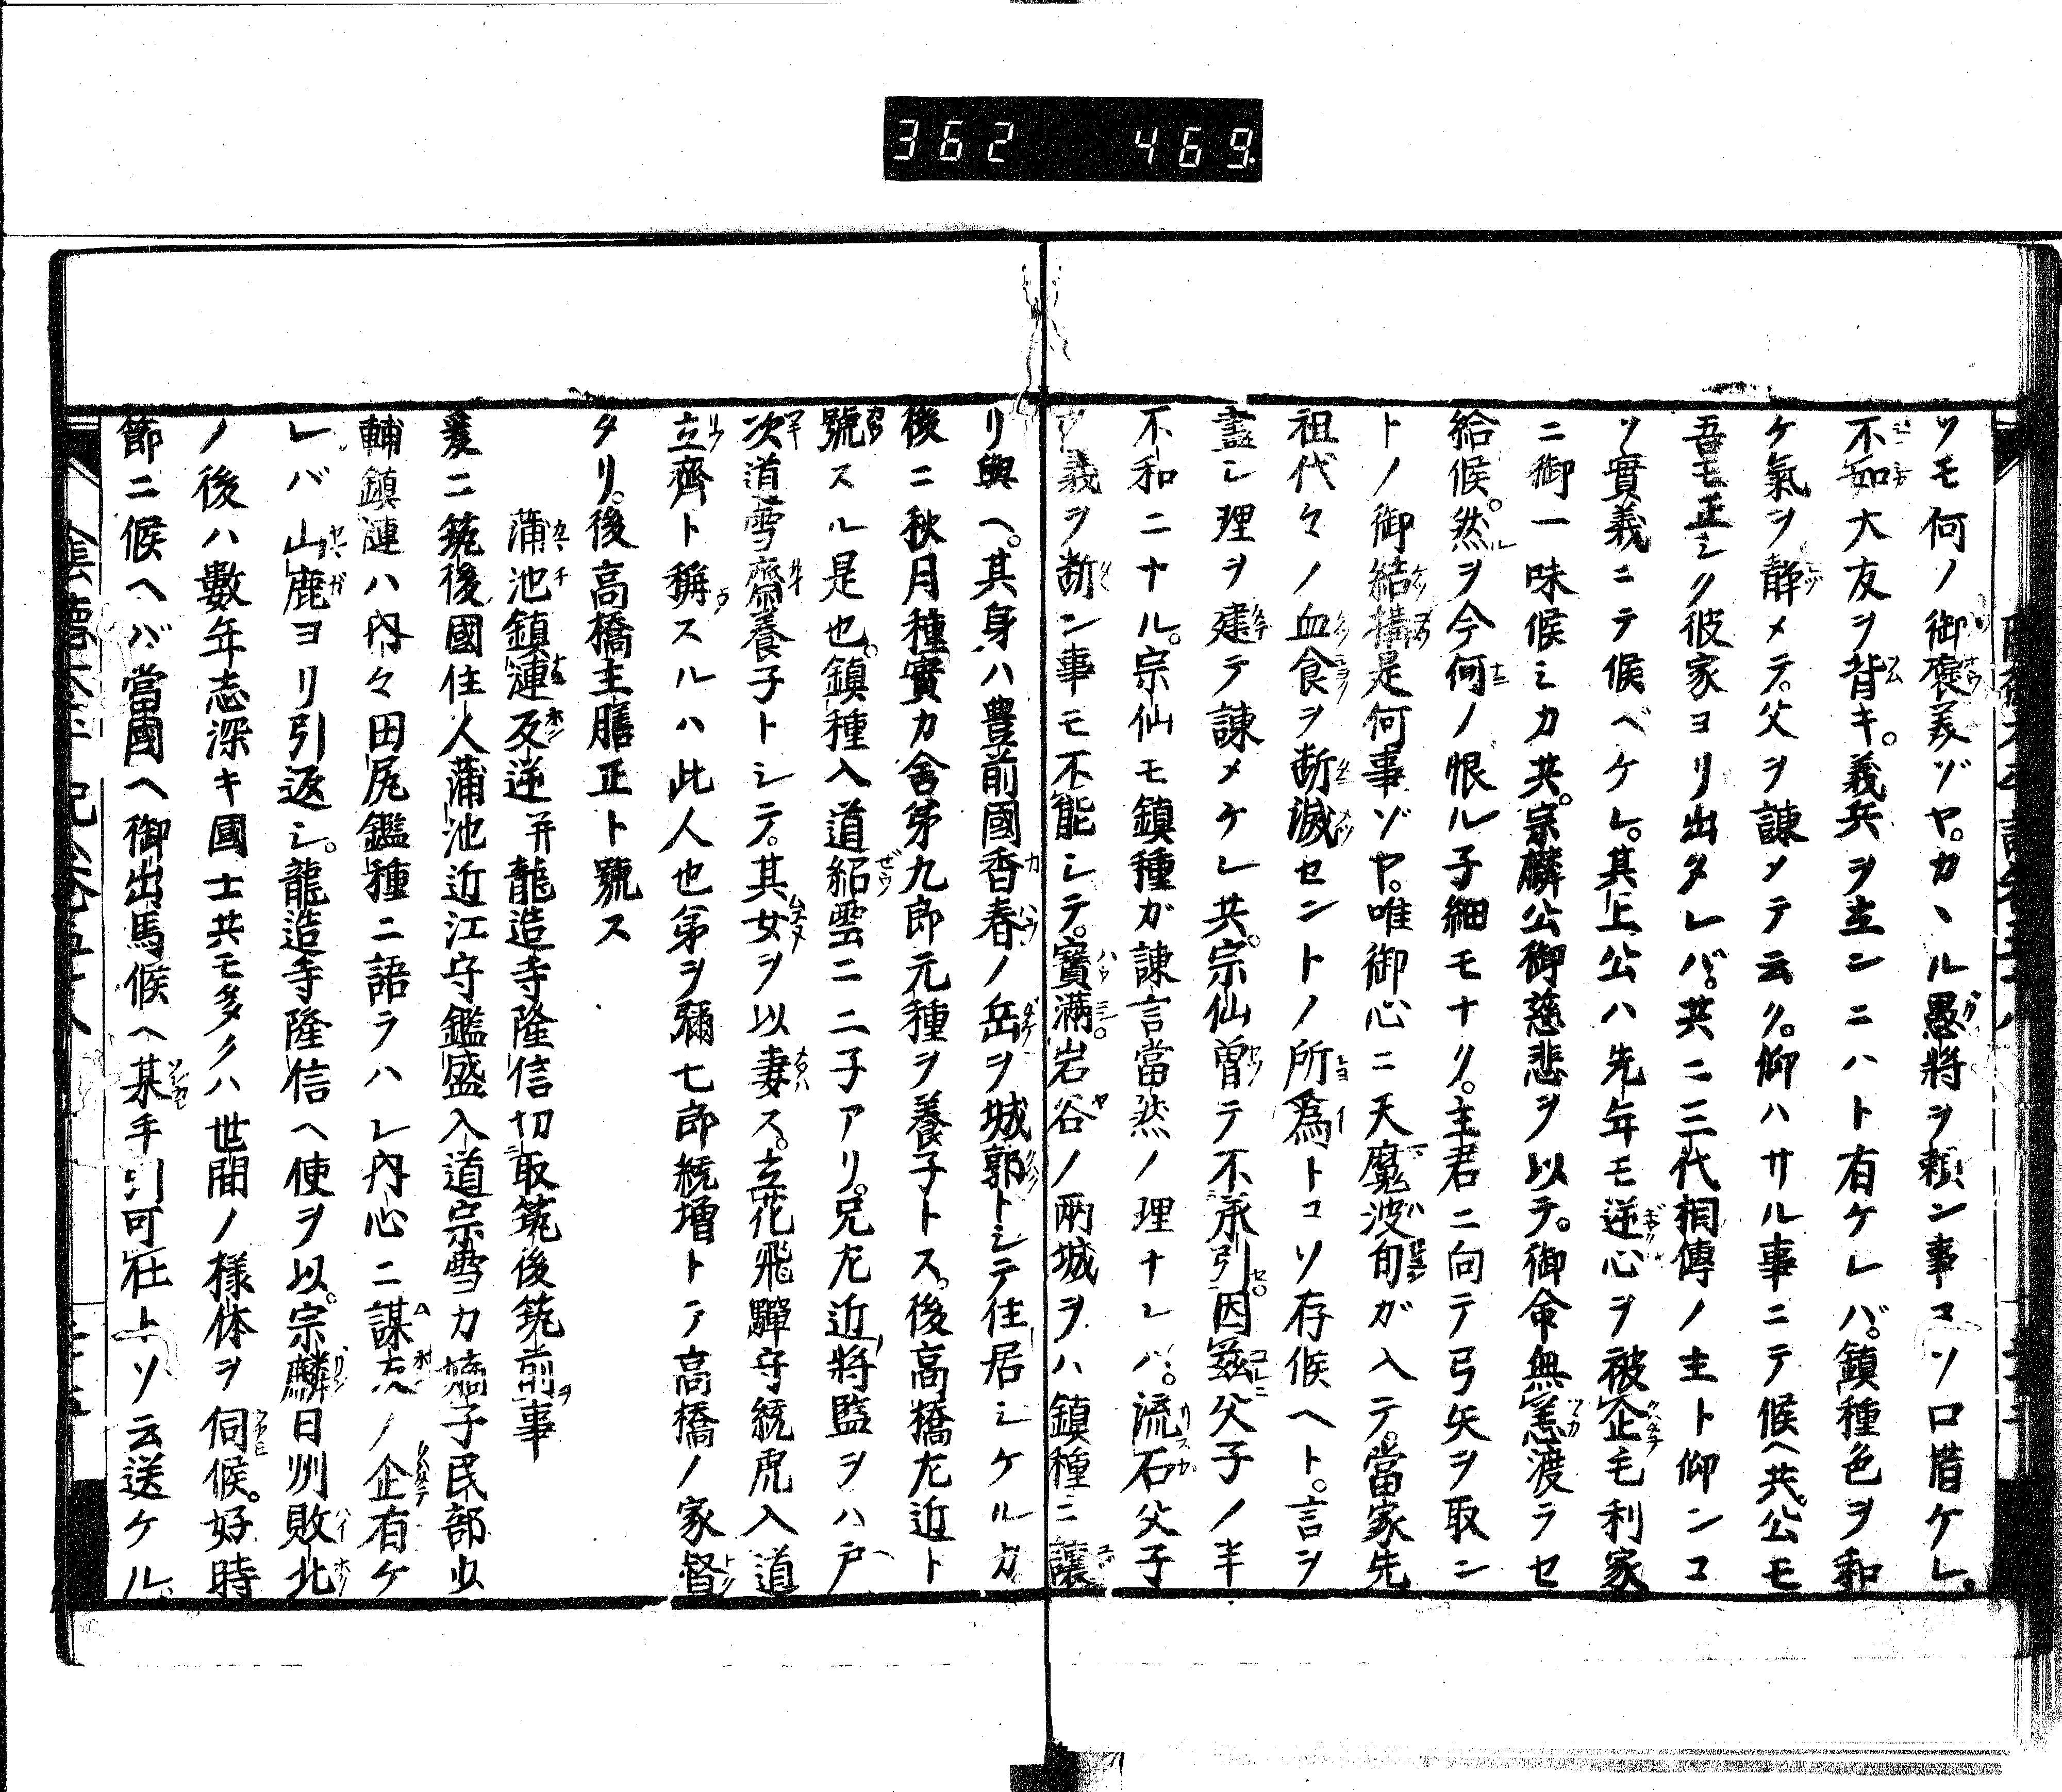 362 469
ソモ何ノ御褒美ゾヤ。カヽル愚將ヲ頼ン事コソ口惜ケレ。
不如大友ヲ背キ。義兵ヲ立ンニハト有ケレバ。鎮種色ヲ和
ケ氣ヲ静メテ。父ヲ諫メテ云ク。仰ハサル事ニテ候ヘ共。公モ
吾モ正シク彼家ヨリ出タレバ。共ニ三代相傳ノ主ト仰ンコ
ソ實義ニテ候ベケレ。其上公ハ先年モ逆心ヲ被企毛利家
ニ御一味候シカ共。宗麟公御慈悲ヲ以テ。御命無恙渡ラセ
給候。然ルヲ今何ノ恨ル子細モナク。主君ニ向テ弓矢ヲ取ン
トノ御結構是何事ゾヤ。唯御心ニ天魔波旬ガ入テ。當家先
祖代々ノ血食ヲ断滅セントノ所為トコソ存候ヘト。言ヲ
盡シ理ヲ建テ諫メケレ共。宗仙曽テ不承引。因茲父子ノ半
不和ニナル。宗仙モ鎮種ガ諫言當然ノ理ナレバ。流石父子
ノ義ヲ断ン事モ不能シテ。寳滿岩谷ノ兩城ヲハ鎮種ニ讓
リ與ヘ。其身ハ豊前國香春ノ岳ヲ城郭トシテ住居シケルカ
後ニ秋月種實カ舎弟九郎元種ヲ養子トス。後高橋左近ト
號スル是也。鎮種入道紹雲ニ二子アリ。兄左近將監ヲハ戸
次道雪齋養子トシテ。其女ヲ以妻ス。立花飛驒守統虎入道
立齊ト稱スルハ此人也弟ヲ彌七郎統増トテ高橋ノ家督
タリ。後高橋主膳正ト號ス
蒲池鎮漣反逆并龍造寺隆信切取筑後筑前事
爰ニ筑後國住人蒲池近江守鑑盛入道宗雪カ嫡子民部少
輔鎮漣ハ内々田尻鑑種ニ語ラハレ内心ニ謀叛ノ企有ケ
レバ山鹿ヨリ引返シ。龍造寺隆信ヘ使ヲ以。宗麟日州敗北
ノ後ハ數年志深キ國士共モ多クハ世間ノ樣体ヲ伺候。好時
節ニ候ヘバ當國ヘ御出馬候ヘ某手引可仕トソ云送ケル。